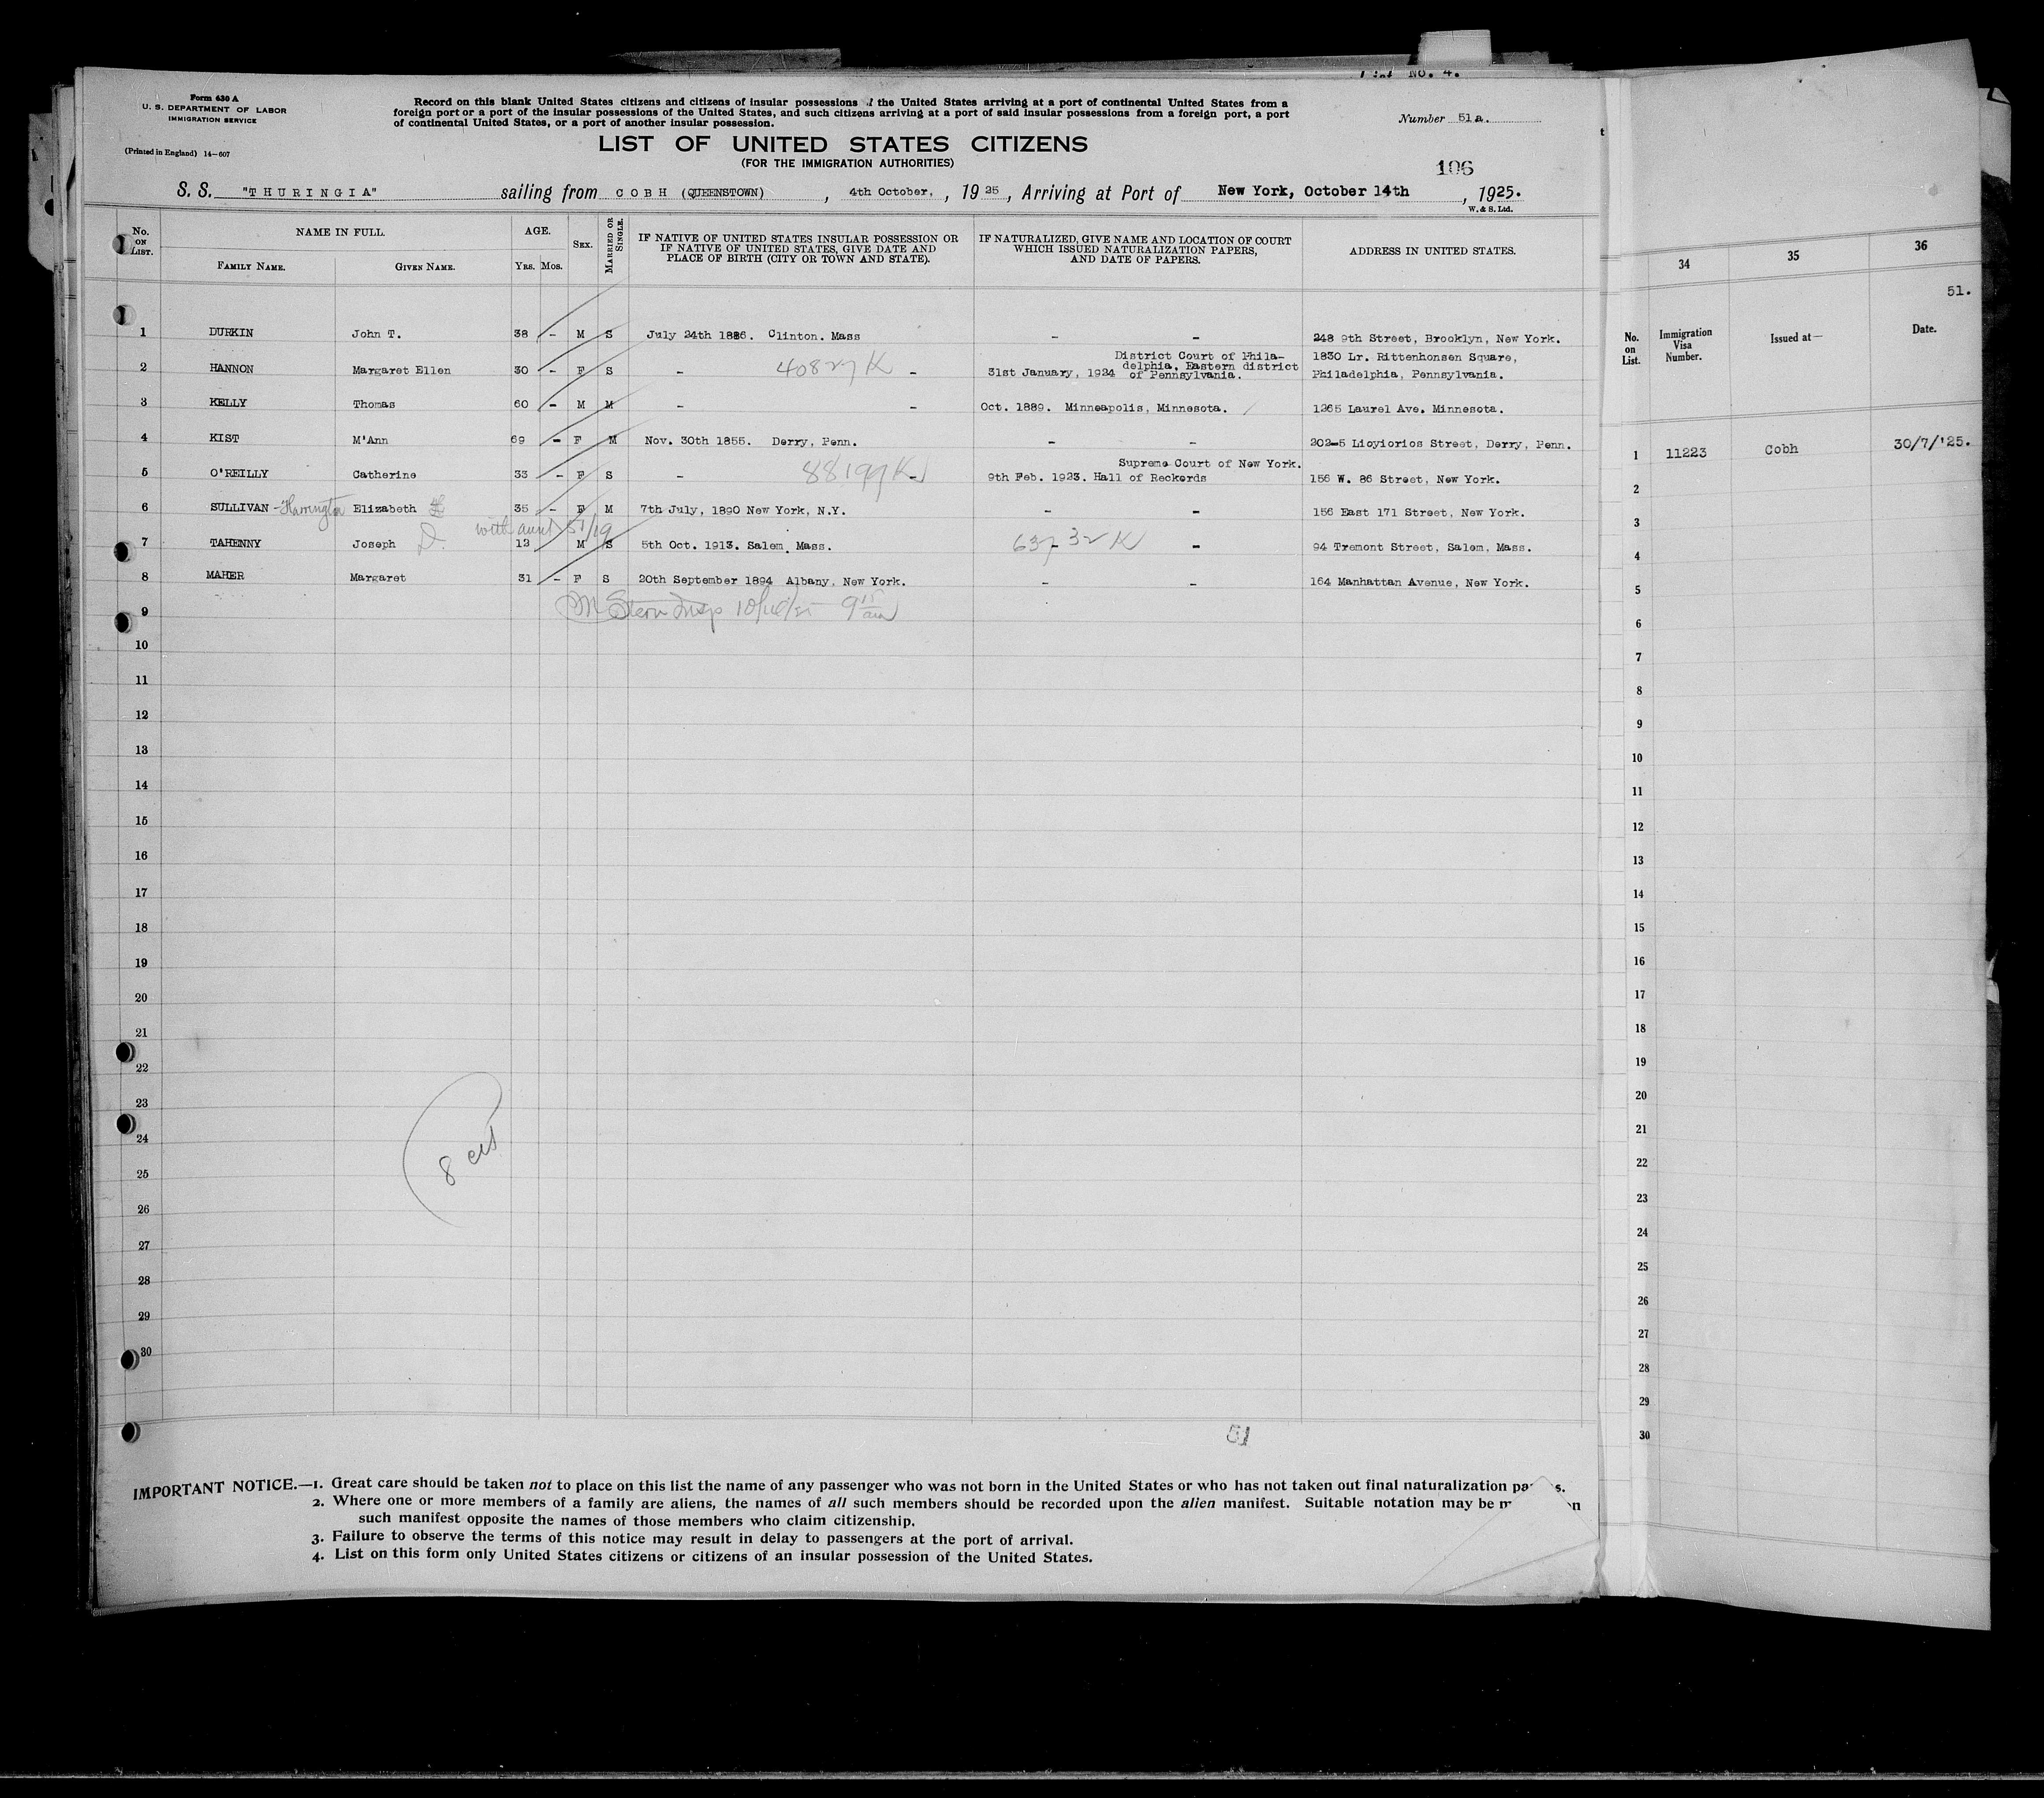 List No. 4.
Form 630 A
U. S. DEPARTMENT OF LABOR
IMMIGRATION SERVICE
(Printed in England) 14—607
Record on this blank United States citizens and citizens of insular possessions of the United States arriving at a port of continental United States from a
foreign port or a port of the insular possessions of the United States, and such citizens arriving at a port of said insular possessions from a foreign port, a port
of continental United States, or a port of another insular possession.
Number 51a.
LIST OF UNITED STATES CITIZENS
(FOR THE IMMIGRATION AUTHORITIES)
106
S. S. "THURINGIA" sailing from COBH (QUEENSTOWN), 4th October, 1925, Arriving at Port of New York, October 14th, 1925.
W. & S. Ltd.
No. on List. NAME IN FULL. AGE. Sex. Married or Single. IF NATIVE OF UNITED STATES INSULAR POSSESSION OR IF NATIVE OF UNITED STATES, GIVE DATE AND PLACE OF BIRTH (CITY OR TOWN AND STATE). IF NATURALIZED, GIVE NAME AND LOCATION OF COURT WHICH ISSUED NATURALIZATION PAPERS, AND DATE OF PAPERS. ADDRESS IN UNITED STATES.
Family Name. Given Name. Yrs. Mos.
1 DURKIN John T. 38 - M S July 24th 1886. Clinton. Mass - - 248 9th Street, Brooklyn, New York.
District Court of Phila- 1830 Lr. Rittenhonsen Square,
2 HANNON Margaret Ellen 30 - F S - 40827 K - 31st January, 1924 delphia, Eastern district
of Pennsylvania. Philadelphia, Pennsylvania.
3 KELLY Thomas 60 - M M - - Oct. 1889. Minneapolis, Minnesota. 1265 Laurel Ave. Minnesota.
4 KIST M'Ann 69 - F M Nov. 30th 1855. Derry, Penn. - - 202-5 Lioyiorios Street, Derry, Penn.
Supreme Court of New York.
5 O'REILLY Catherine 33 - F S - - 9th Feb. 1923. Hall of Reckords 156 W. 86 Street, New York.
6 SULLIVAN -Harrington Elizabeth 35 - F M 7th July, 1890 New York, N.Y. - - 156 East 171 Street, New York.
with aunt 51/19
7 TAHENNY Joseph D. 12 M S 5th Oct. 1913. Salem. Mass. 637-32 K - 94 Tremont Street, Salem, Mass.
8 MAHER Margaret 31 - F S 20th September 1894 Albany, New York. - - 164 Manhattan Avenue, New York.
9 M Stern Insp
10
11
12
13
14
15
16
17
18
19
20
21
22
23
24
8 cit
25
26
27
28
29
30
51
IMPORTANT NOTICE.—1. Great care should be taken not to place on this list the name of any passenger who was not born in the United States or who has not taken out final naturalization pa s.
2. Where one or more members of a family are aliens, the names of all such members should be recorded upon the alien manifest. Suitable notation may be m n
such manifest opposite the names of those members who claim citizenship.
3. Failure to observe the terms of this notice may result in delay to passengers at the port of arrival.
4. List on this form only United States citizens or citizens of an insular possession of the United States.
34 35 36
51.
No. on List. Immigration Visa Number. Issued at— Date.
1 11223 Cobh 30/7/'25.
2
3
4
5
6
7
8
9
10
11
12
13
14
15
16
17
18
19
20
21
22
23
24
25
26
27
28
29
30